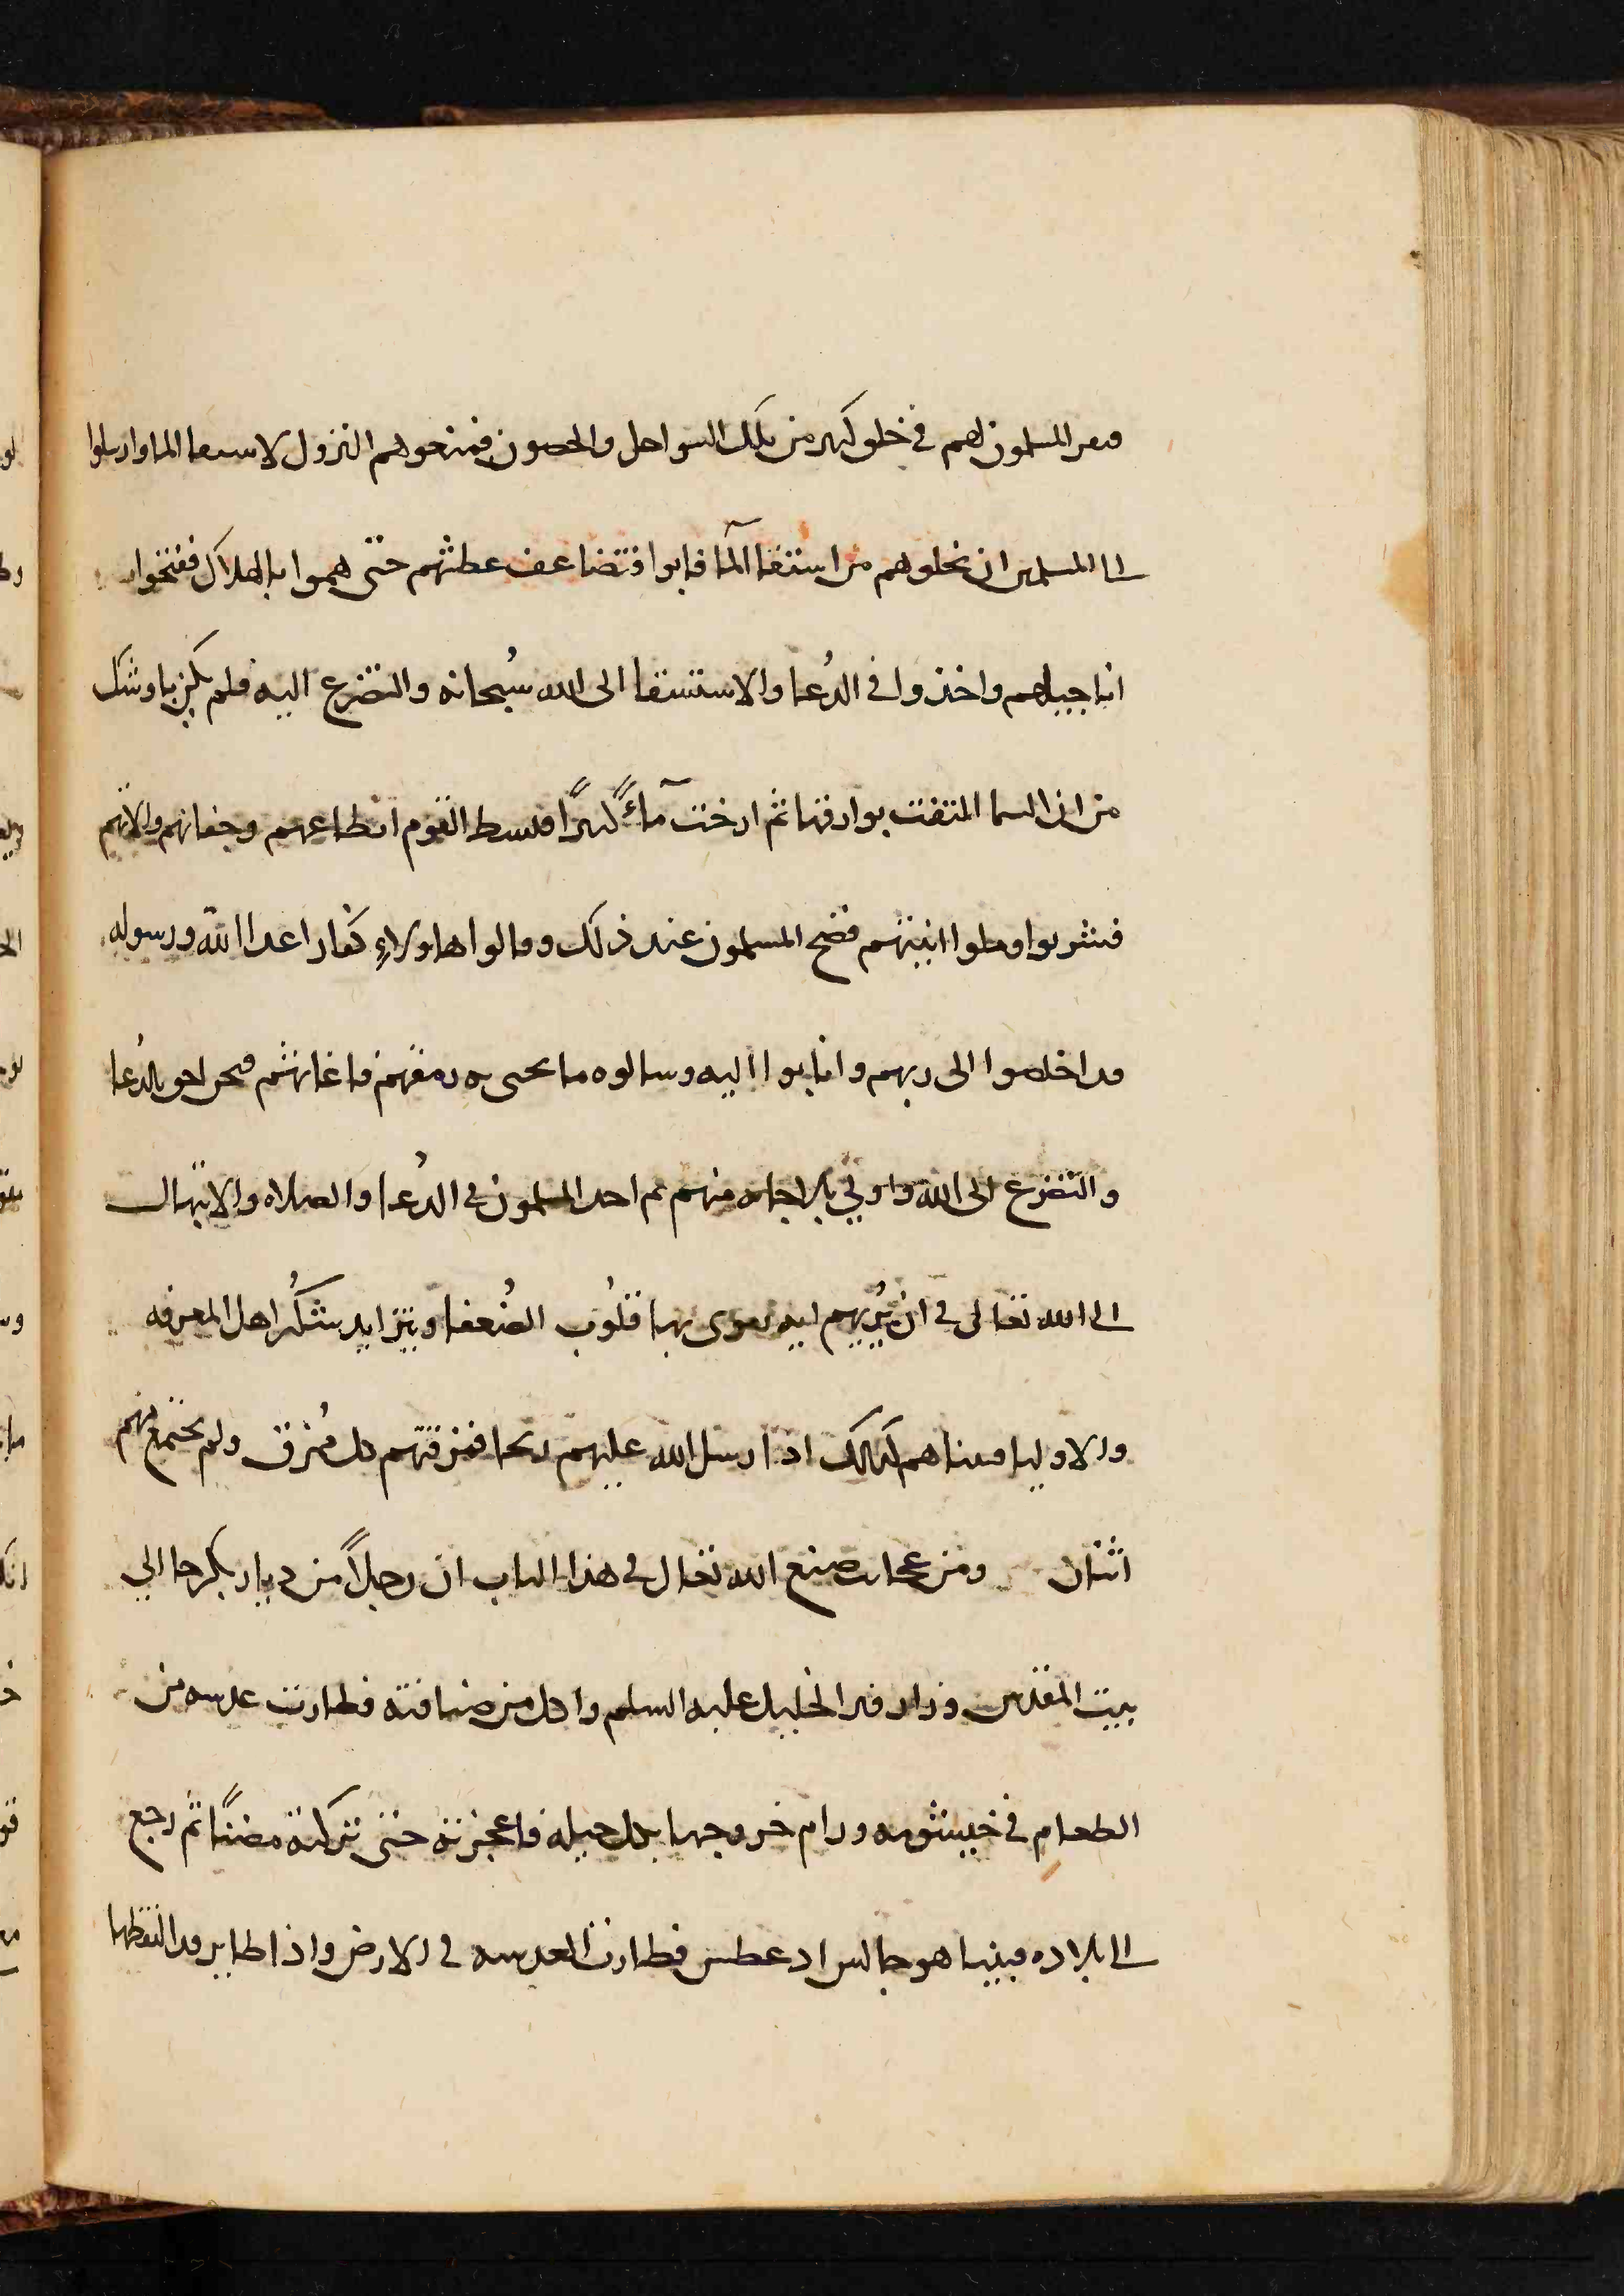 فنفر المسلمون لهم في خلق كثير من تلك السواحل والحصون فمنعوهم النزول لاستقا الما وارسلوا
الى المسلمين ان يخلوهم من استقا المآ فابوا فتضاعف عطشهم حتى هموا بالهلاك ففتحوا
اناجيلهم واخذوا في الدُعا والاستسقا الى الله سُبحانه والتضرع اليه فلم يكن باوشك
من ان السما التفت بوارقها ثم ارخت مآءً كثيرًا فبسط القوم انطاعهم وجفانهم والاتهم
فشربوا وملوا انيتهم فضج المسلمون عند ذلك وقالوا هاولاءِ كفار اعدا الله ورسوله
قد اخلصوا الى ربهم وانابوا اليه وسالوه ما يحيي به رمقهم فاغاثهم فنحن احق بالدُعا
والتضرع الى الله واولى بالاجابه منهم ثم اخذ المسلمون في الدُعا والصلاه والابتهال
الى الله تعالى في ان يُريهم ايه تقوى بها قلُوب الضُعفا ويتزايد شكُر اهل المعرفه
والاوليا فبينا هم كذلك اذ ارسل الله عليهم ريحا فمزقتهم كل مُمزق ولم يجتمع منهم
اثنان ومن عجائب صنع الله تعالى في هذا الباب ان رجلاً من ديار بكر جا الى
بيت المقدس وزار قبر الخليل عليه السلم واكل من ضيافته فطارت عدسه من
الطعام في خيشومه ورام خروجها بكل حيله فاعجزته حتى تركته مضنًا ثم رجع
الى بلاده فبينما هو جالس اذ عطس فطارت العدسه في الارض واذا طاير قد التقطها